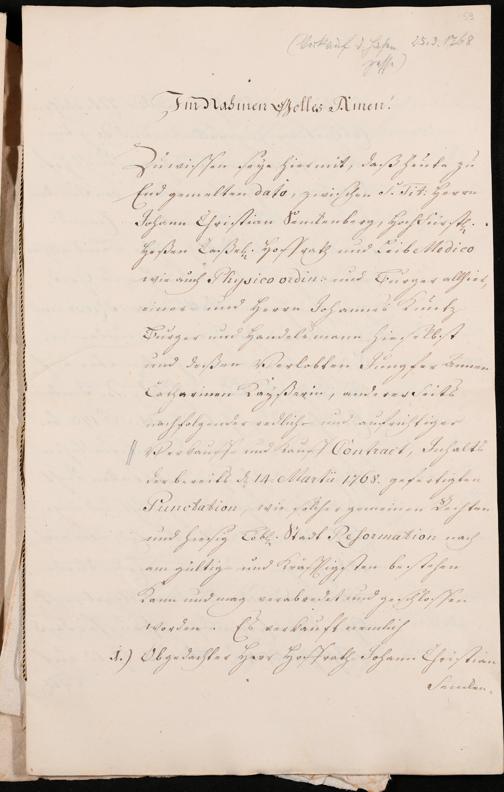 59
(Verkauf d. Hasen 25.3.1768
gasse)
Im Nahmen Gottes Amen!
Zu wissen seye hiermit, daß heute zu
End gemelten dato, zwischen S. Tit. Herrn
Johann Christian Senkenberg, Hochfürstl.
Heßen Caßel. Hoffrath und Leib Medico
wie auch Physico ordin. und Burger allhier,
einer und Herrn Johannes Kuntz
Burger und Handelsmann hieselbst
und deßen Verlobten Jungfer Annen
Catharinen Kayßerin, anderer Seits
nachfolgender redlich und aufrichtiger
Verkauffs und Kauff Contract, Inhalts
der bereits d. 14. Martii 1768. gefertigten
Punctation, wie solcher gemeinen Rechten
und hiesig Löbl. Stadt Reformation nach
am gültig und kräfftigsten bestehen
kann und mag verabredet und geschlossen
worden. Es verkauft nemlich
1.) Obgedachter Herr Hoffrath Johann Christian
Senken-